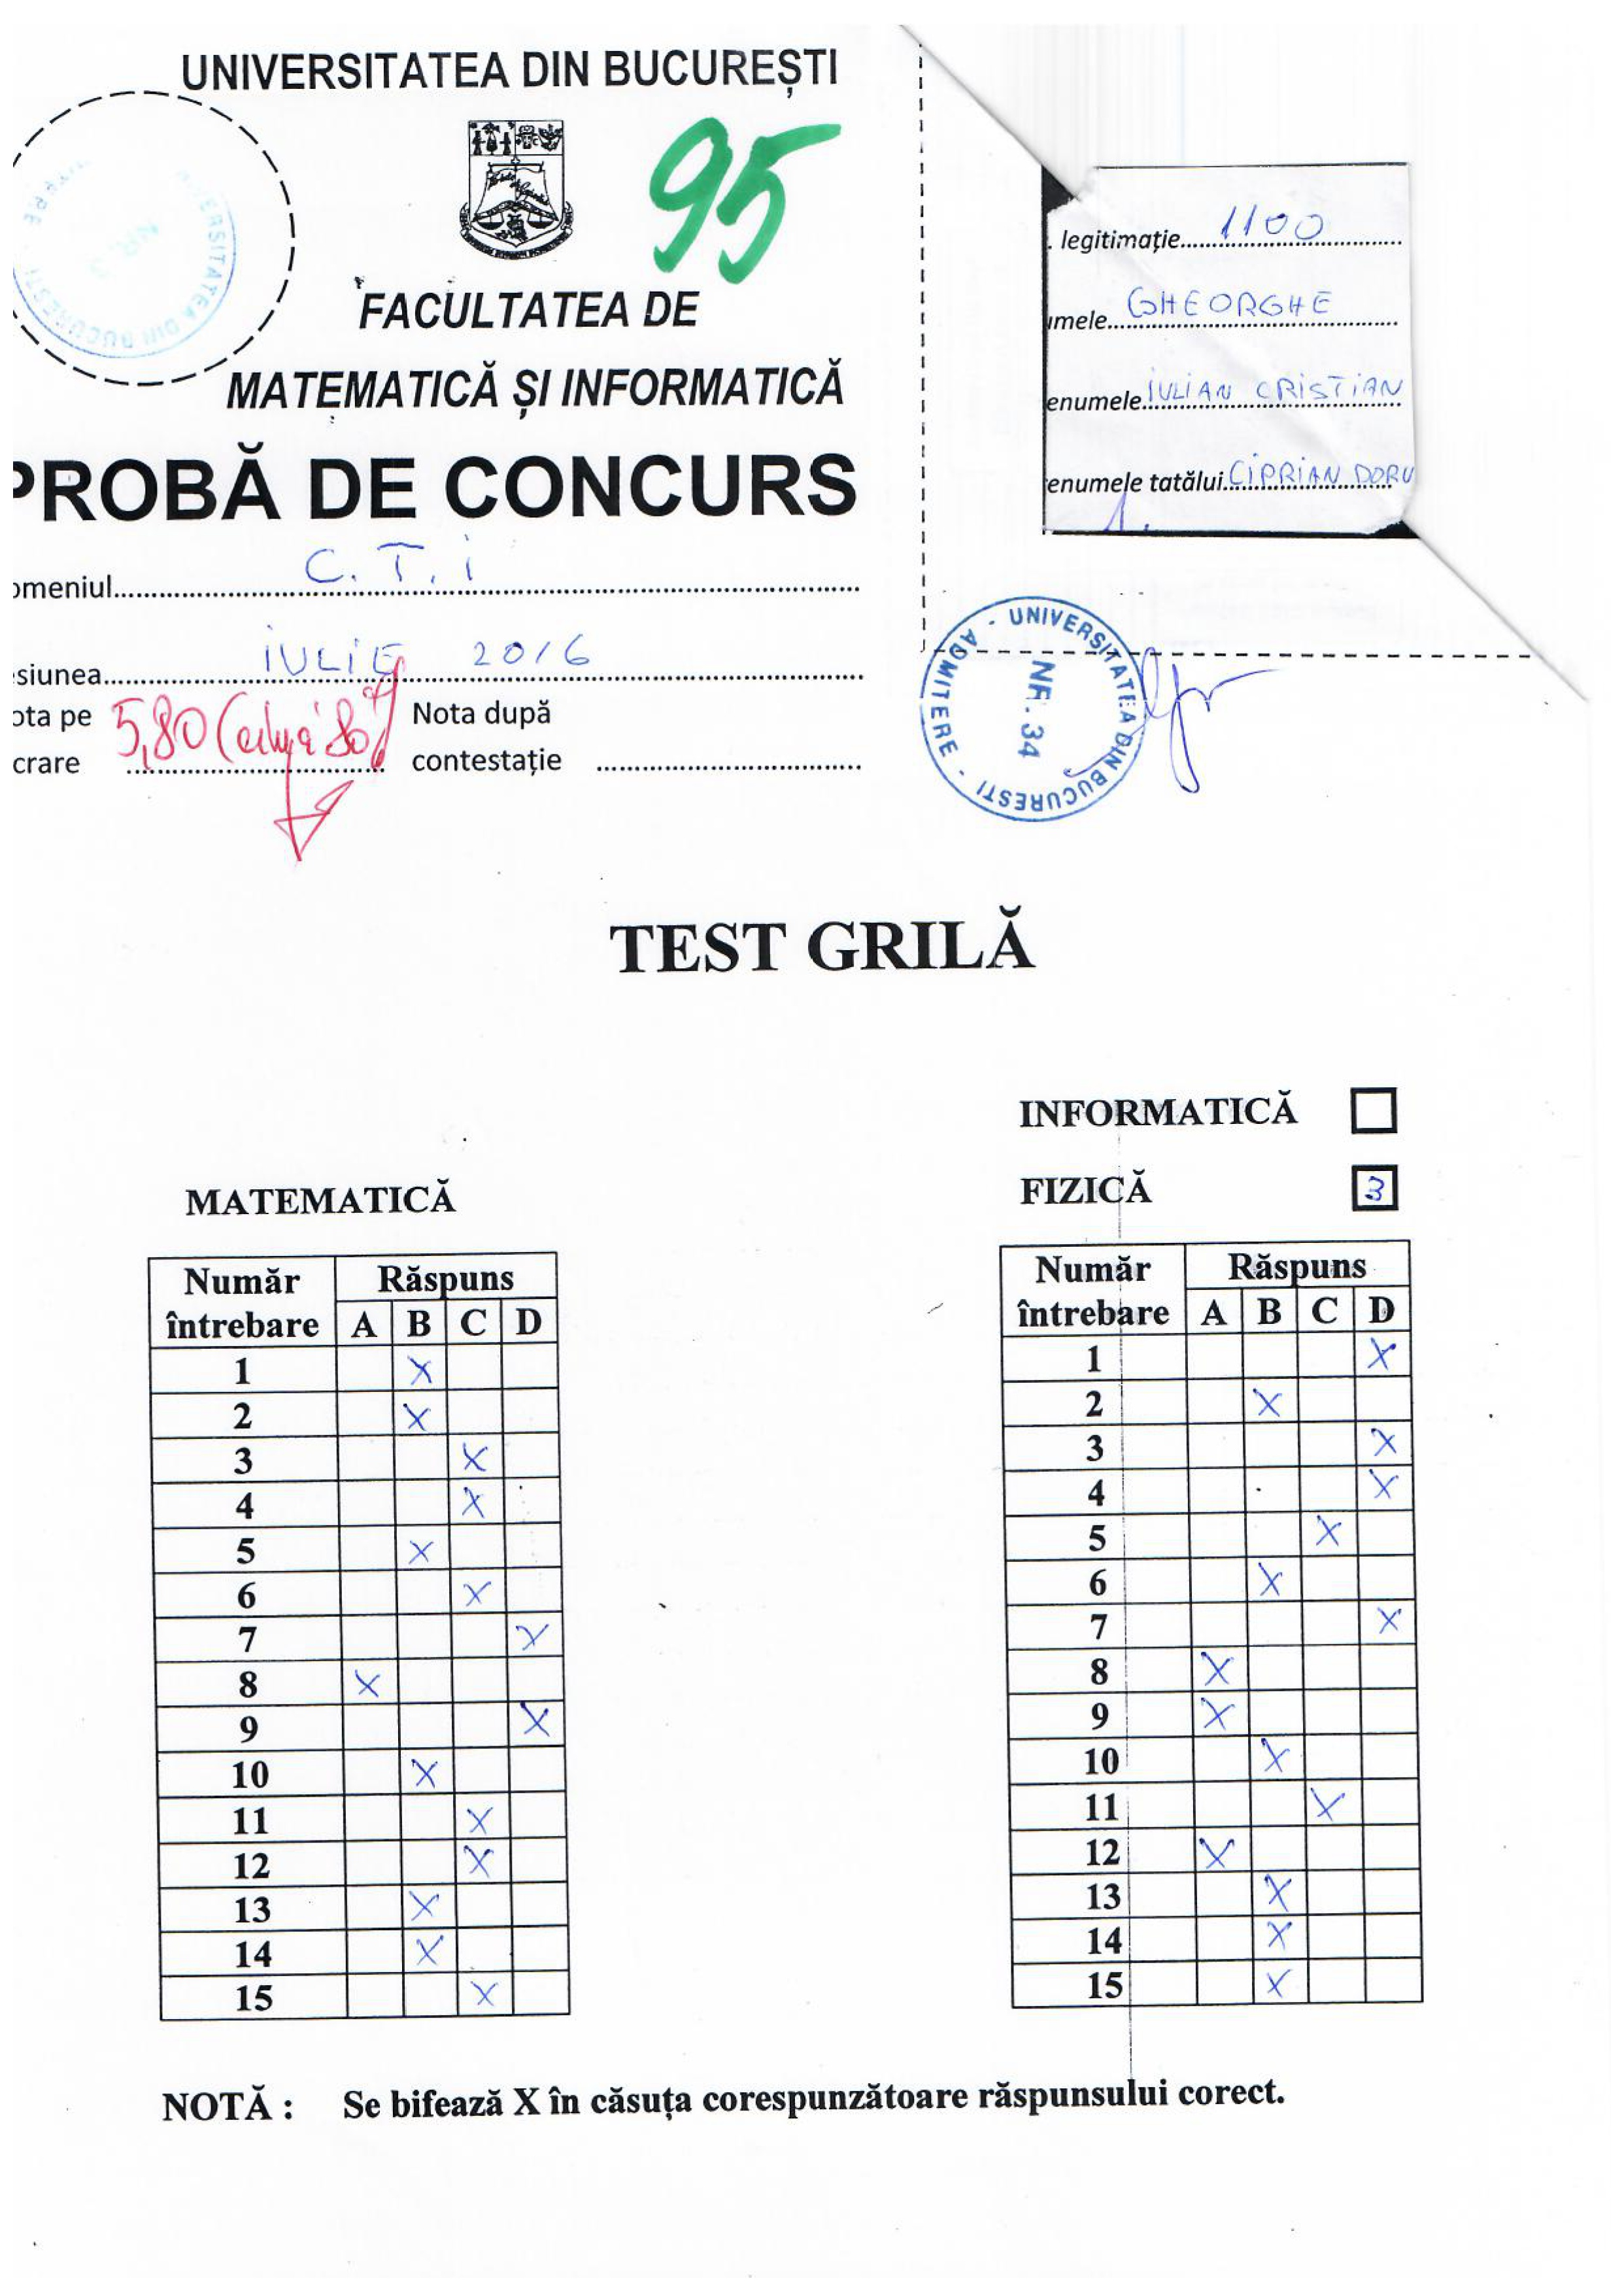 UNIVERSITATEA DIN BUCUREȘTI
95
FACULTATEA DE
MATEMATICĂ ȘI INFORMATICĂ
PROBĂ DE CONCURS
omeniul C.T.i
siunea iULiE 2016
ota pe
crare 5,80 (cinci 80%)
Nota după
contestație
. legitimație 1100
umele GHEORGHE
enumele iULIAN CRiSTiAN
enumele tatălui CiPRiAN DORU
UNIVERSITATEA DIN BUCURESTI - ADMITERE -
NR. 34
TEST GRILĂ
INFORMATICĂ
FIZICĂ 3
MATEMATICĂ
Număr întrebare Răspuns
A B C D
1 X
2 X
3 X
4 X
5 X
6 X
7 X
8 X
9 X
10 X
11 X
12 X
13 X
14 X
15 X
Număr întrebare Răspuns
A B C D
1 X
2 X
3 X
4 X
5 X
6 X
7 X
8 X
9 X
10 X
11 X
12 X
13 X
14 X
15 X
NOTĂ : Se bifează X în căsuța corespunzătoare răspunsului corect.